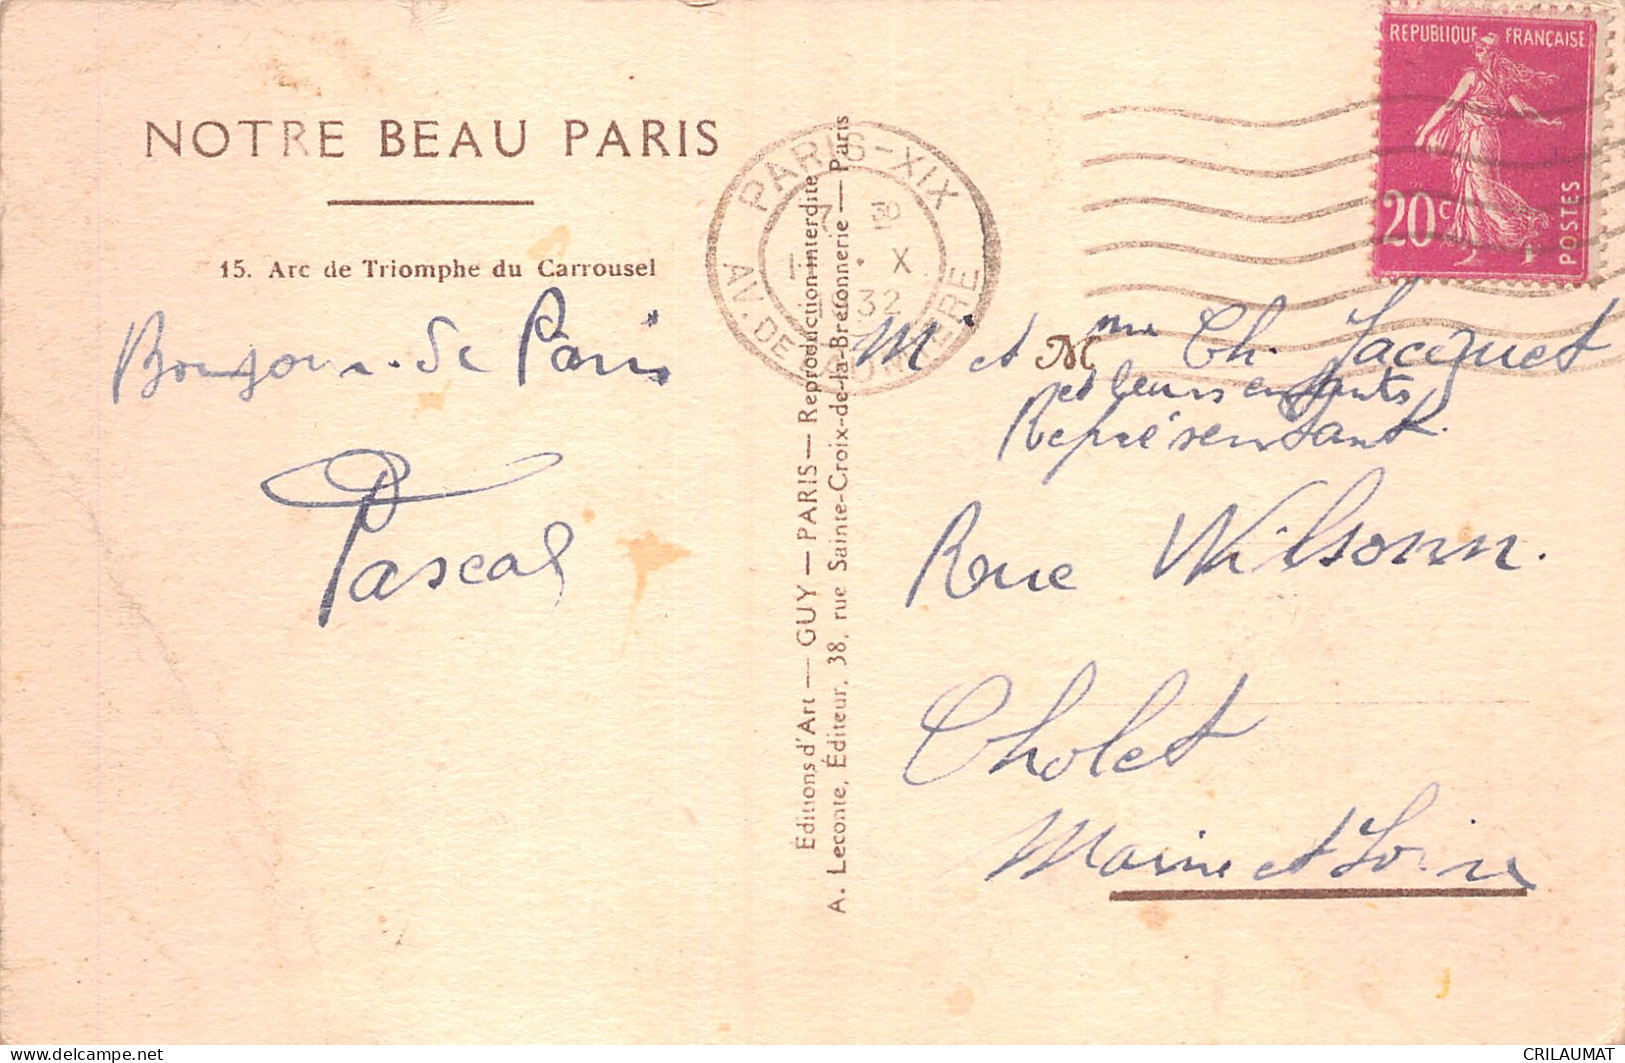 NOTRE BEAU PARIS
15. Arc de Triomphe du Carrousel
Bonjour de Paris
Pascal
Editions d'Art — GUY — PARIS — Reproduction interdite
A. Leconte, Éditeur, 38, rue Sainte-Croix-de-la-Bretonnerie — Paris
PARIS-XIX
7 30
1 • X
32
AV. DE
REPUBLIQUE FRANÇAISE
20c
POSTES
Mr et Mme Ch. Jacquet
et leurs enfants
Représentant.
Rue Wilsonn.
Cholet
Maine et Loire
delcampe.net
CRILAUMAT